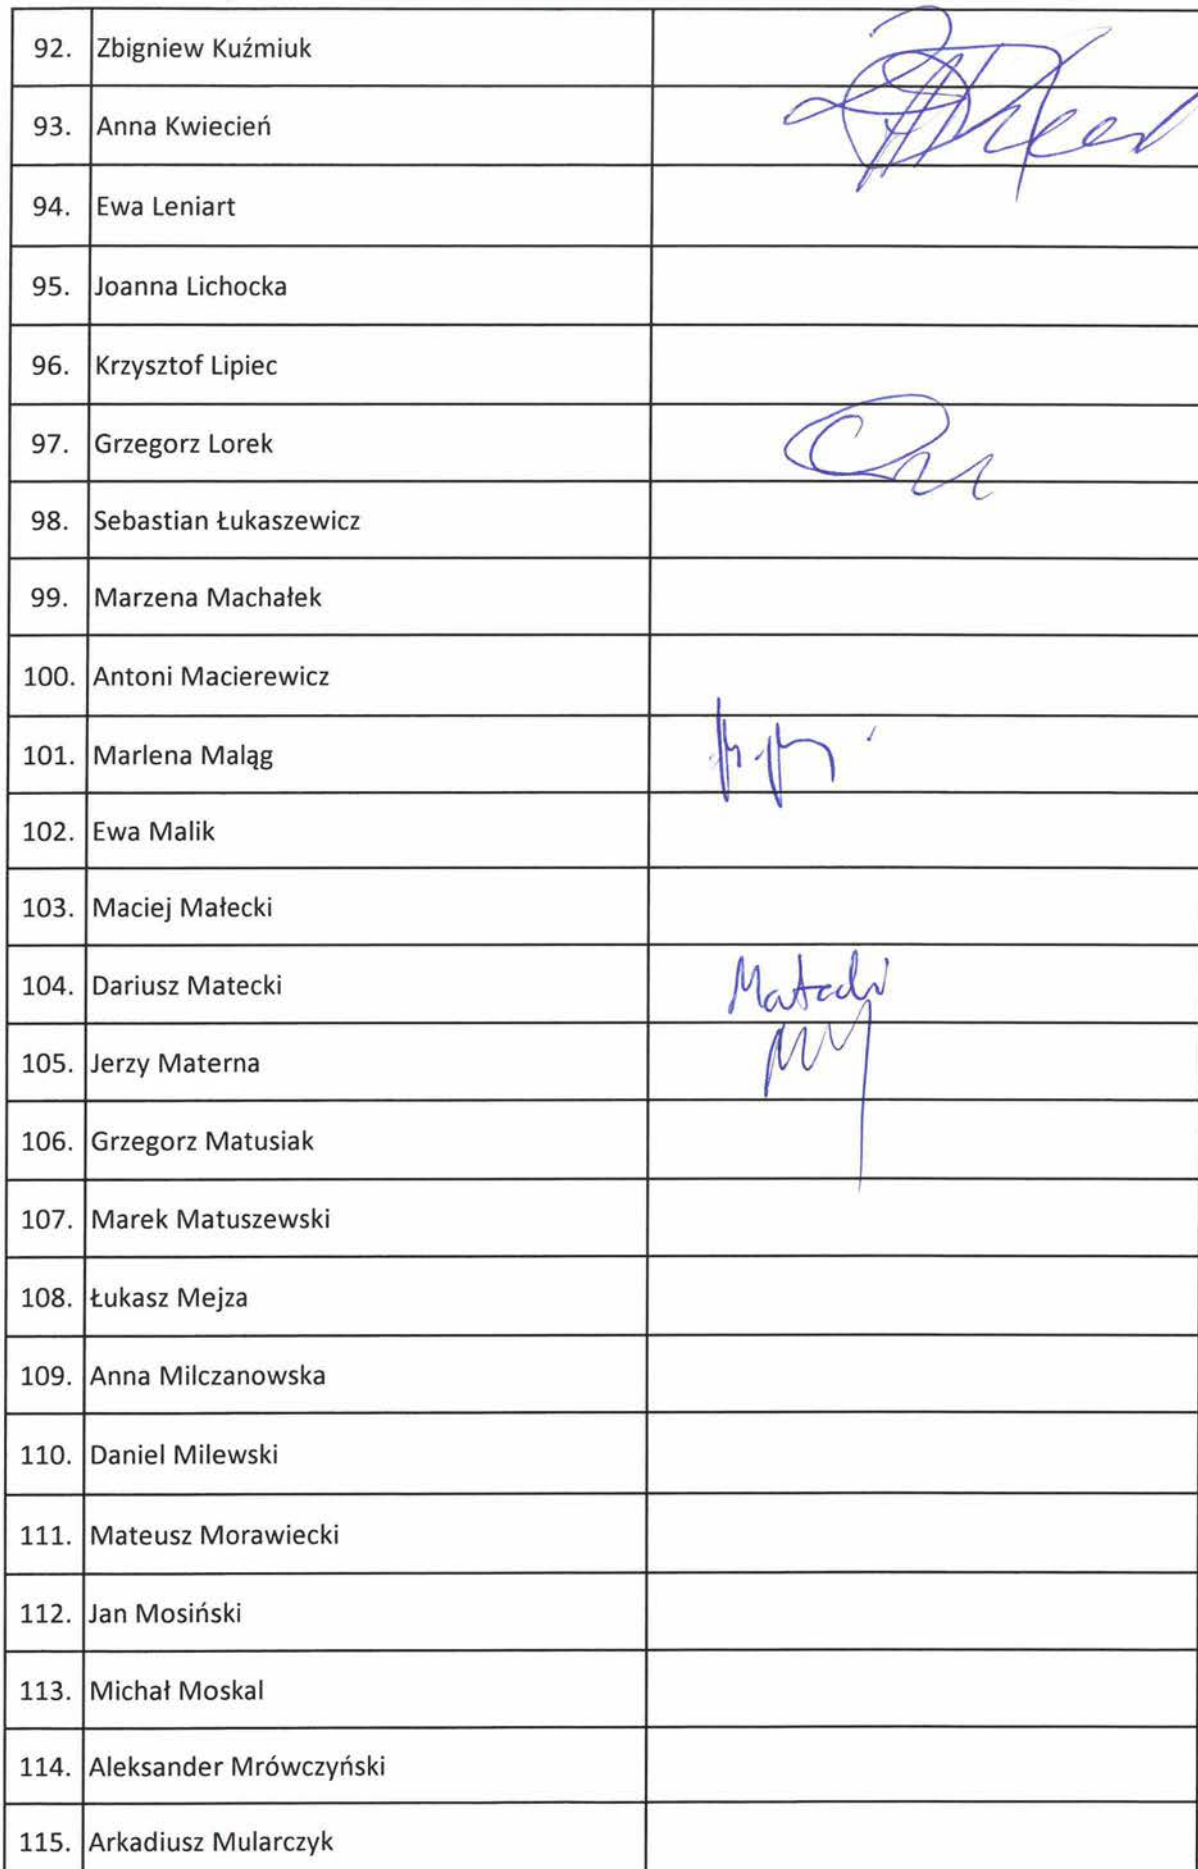 92. Zbigniew Kuźmiuk
93. Anna Kwiecień
94. Ewa Leniart
95. Joanna Lichocka
96. Krzysztof Lipiec
97. Grzegorz Lorek
98. Sebastian Łukaszewicz
99. Marzena Machałek
100. Antoni Macierewicz
101. Marlena Maląg
102. Ewa Malik
103. Maciej Małecki
104. Dariusz Matecki Matecki
105. Jerzy Materna
106. Grzegorz Matusiak
107. Marek Matuszewski
108. Łukasz Mejza
109. Anna Milczanowska
110. Daniel Milewski
111. Mateusz Morawiecki
112. Jan Mosiński
113. Michał Moskal
114. Aleksander Mrówczyński
115. Arkadiusz Mularczyk